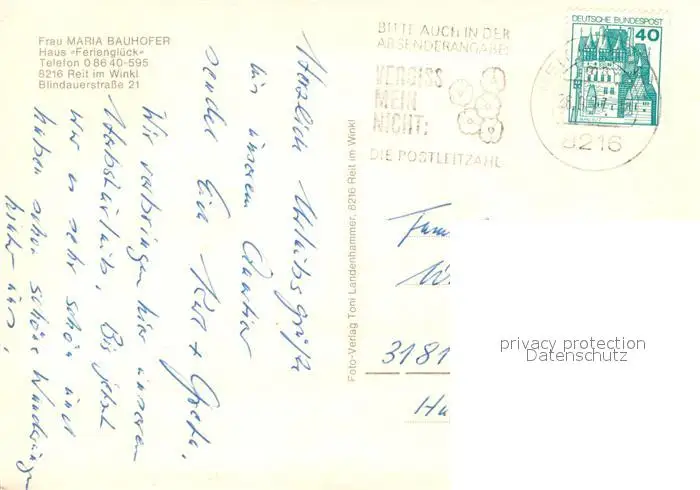 Frau MARIA BAUHOFER
Haus »Ferienglück«
Telefon 0 86 40-595
8216 Reit im Winkl
Blindauerstraße 21
BITTE AUCH IN DER
ABSENDERANGABE:
VERGISS
MEIN
NICHT:
DIE POSTLEITZAHL
DEUTSCHE BUNDESPOST
40
8216
Herzlich Urlaubsgrüße
aus unserem Quartier
sendet Eva Kurt + Greta.
Wir verbringen hier unseren
Herbsturlaub. Bis jetzt
war es sehr schön und
haben schon schöne Wanderungen
hinter uns.
Foto-Verlag Toni Landenhammer, 8216 Reit im Winkl
Fam
W
3181
Ha
privacy protection
Datenschutz